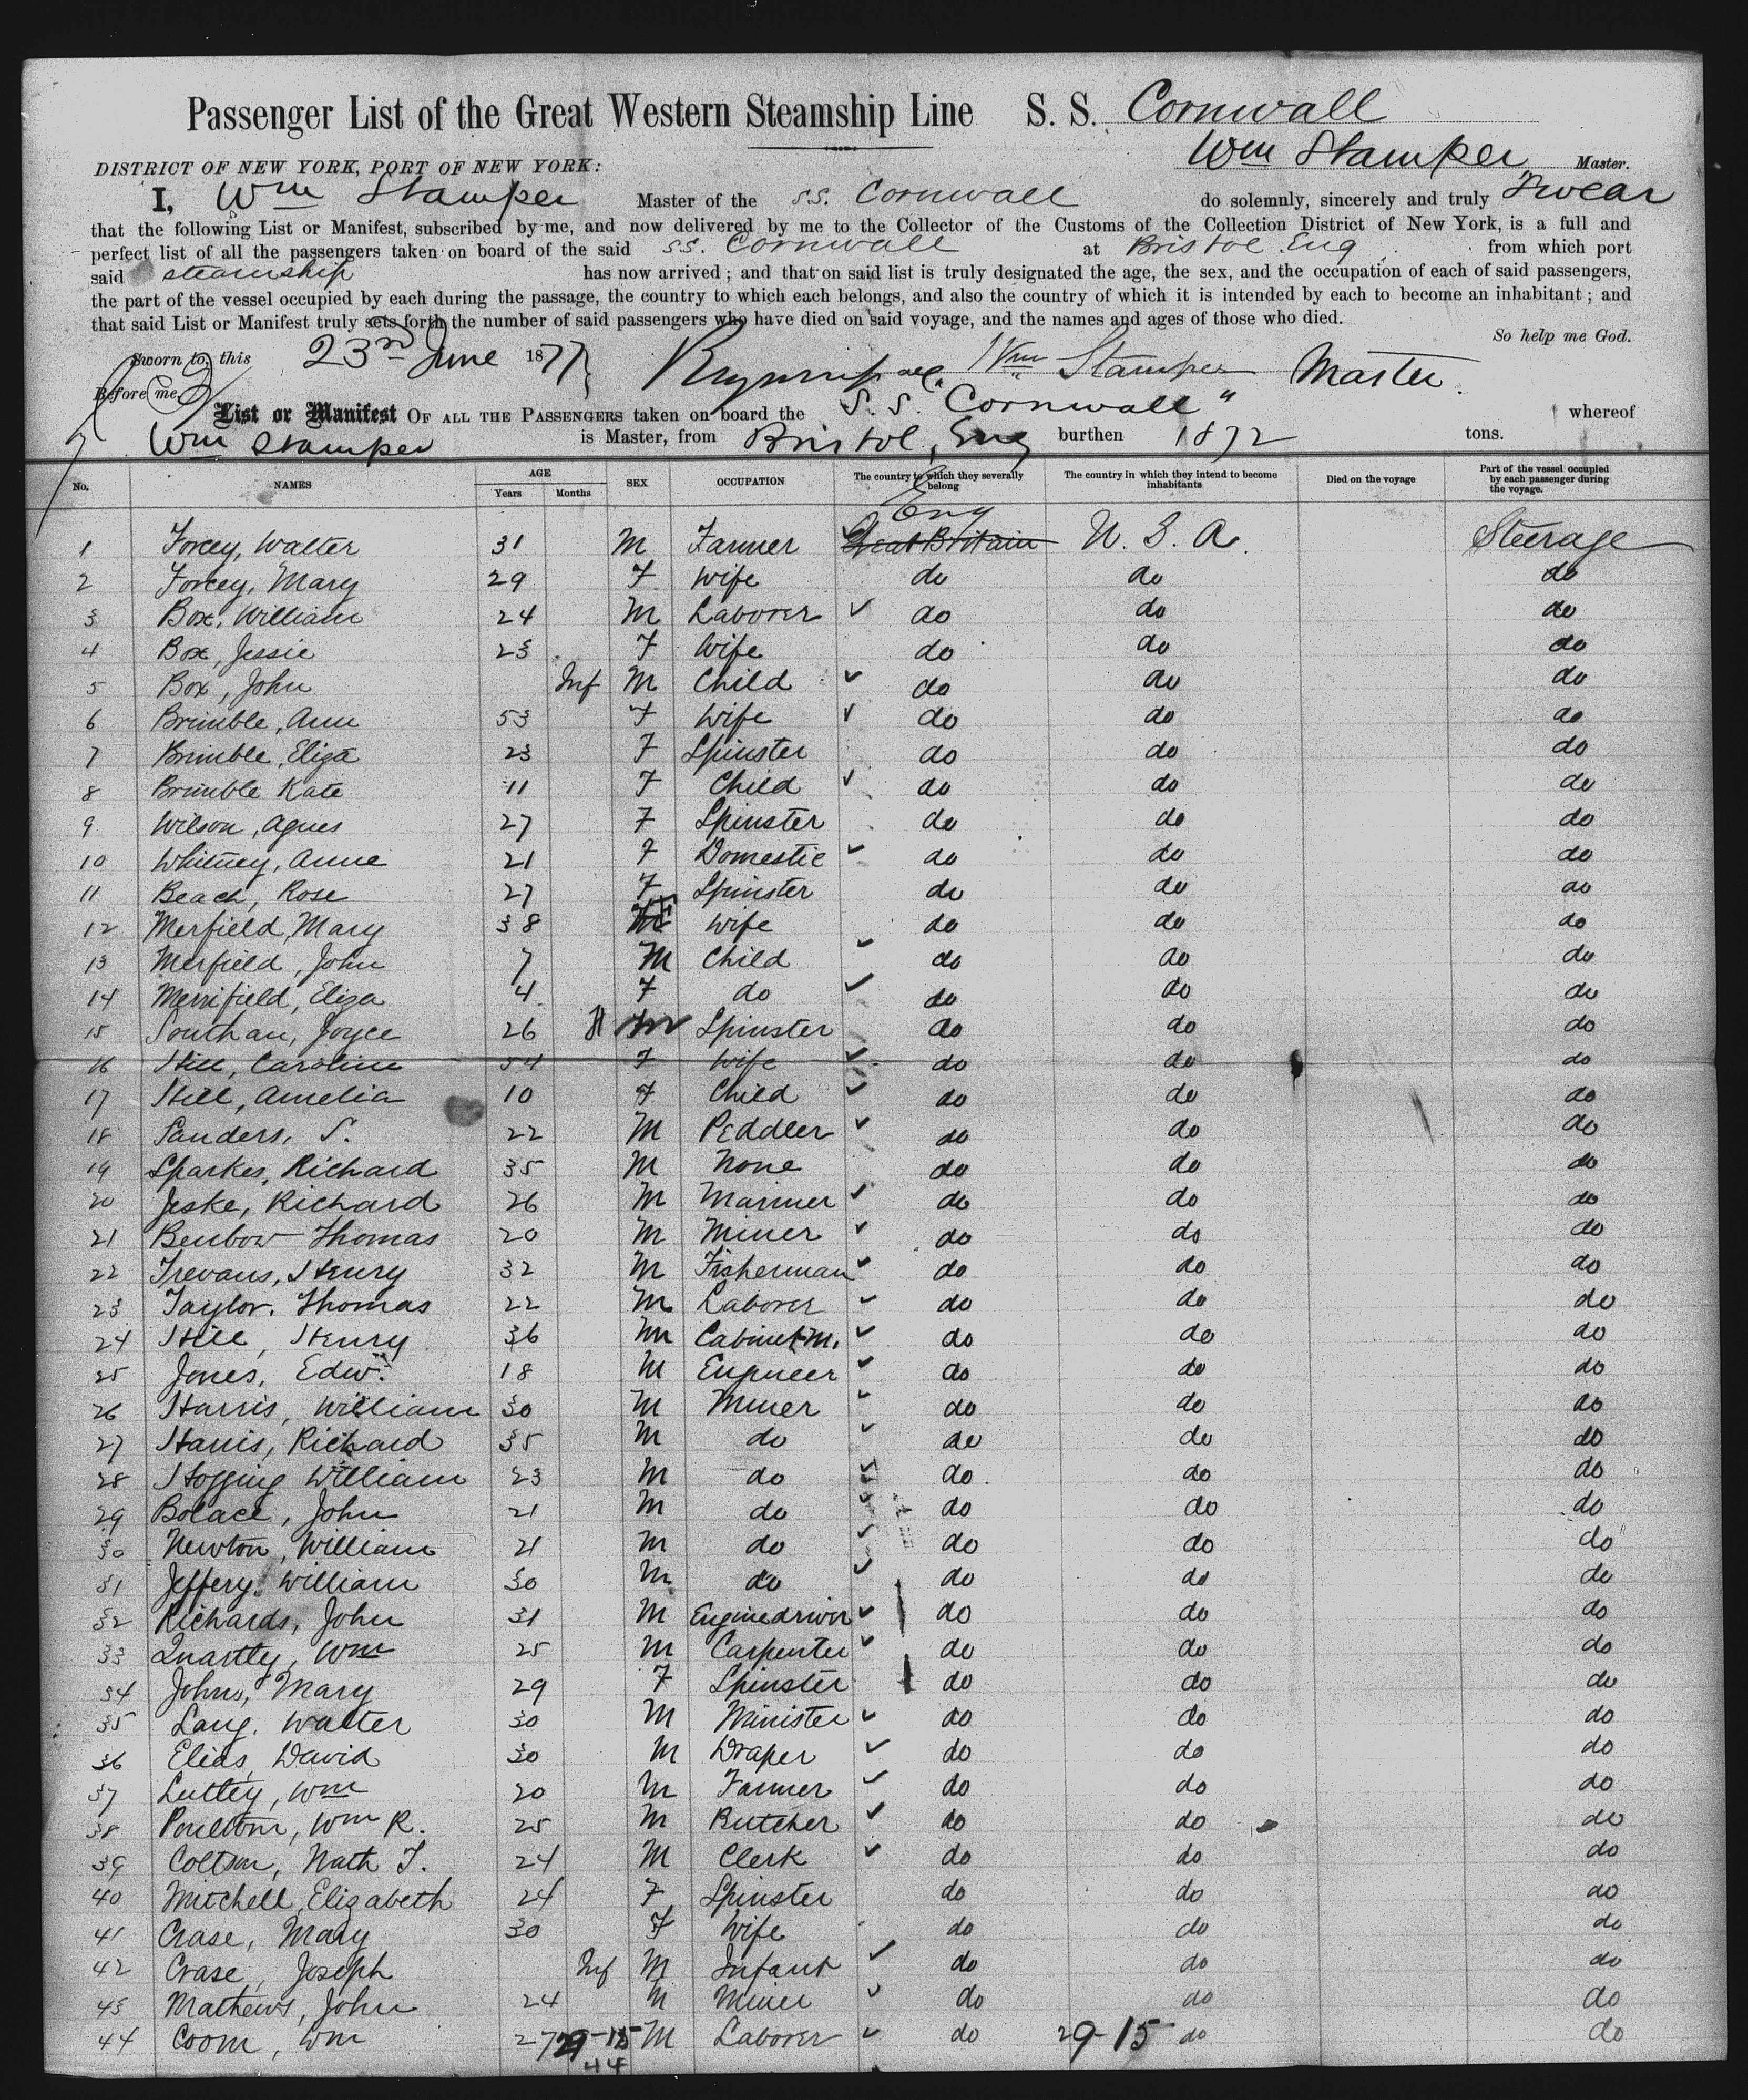 Passenger List of the Great Western Steamship Line S. S. Cornwall
Wm Stamper Master.
DISTRICT OF NEW YORK, PORT OF NEW YORK:
I, Wm Stamper Master of the S.S. Cornwall do solemnly, sincerely and truly Swear
that the following List or Manifest, subscribed by me, and now delivered by me to the Collector of the Customs of the Collection District of New York, is a full and
perfect list of all the passengers taken on board of the said S.S. Cornwall at Bristol Eng from which port
said steamship has now arrived; and that on said list is truly designated the age, the sex, and the occupation of each of said passengers,
the part of the vessel occupied by each during the passage, the country to which each belongs, and also the country of which it is intended by each to become an inhabitant; and
that said List or Manifest truly sets forth the number of said passengers who have died on said voyage, and the names and ages of those who died.
So help me God.
Sworn to, this 23rd June 1877 Wm Stamper Master
Before me,
List or Manifest OF ALL THE PASSENGERS taken on board the S. S. "Cornwall" whereof
Wm Stamper is Master, from Bristol, Eng burthen 1872 tons.
No. NAMES AGE Years Months SEX OCCUPATION The country to which they severally belong The country in which they intend to become inhabitants Died on the voyage Part of the vessel occupied by each passenger during the voyage.
Eng
1 Forcey, Walter 31 M Farmer Great Britain U. S. A. Steerage
2 Forcey, Mary 29 F Wife do do do
3 Box, William 24 M Laborer do do do
4 Box, Jessie 23 F Wife do do do
5 Box, John Inf M Child do do do
6 Brimble, Ann 53 F Wife do do do
7 Brimble, Eliza 23 F Spinster do do do
8 Brimble Kate 11 F Child do do do
9 Wilson, Agnes 27 F Spinster do do do
10 Whitney, Anne 21 F Domestic do do do
11 Beach, Rose 27 F Spinster do do do
12 Merfield, Mary 38 F Wife do do do
13 Merfield, John 7 M Child do do do
14 Merrifield, Eliza 4 F do do do do
15 Southan, Joyce 26 Spinster do do do
16 Hill, Caroline 54 F Wife do do do
17 Hill, Amelia 10 F Child do do do
18 Sanders, S. 22 M Peddler do do do
19 Sparkes, Richard 35 M None do do do
20 Jeske, Richard 26 M Mariner do do do
21 Benbow Thomas 20 M Miner do do do
22 Trevans, Henry 32 M Fisherman do do do
23 Taylor, Thomas 22 M Laborer do do do
24 Hill, Henry 36 M Cabinet M. do do do
25 Jones, Edwd 18 M Engineer do do do
26 Harris, William 30 M Miner do do do
27 Harris, Richard 35 M do do do do
28 Hogging William 23 M do do do do
29 Bolace, John 21 M do do do do
30 Newton, William 21 M do do do do
31 Jeffery, William 30 M do do do do
32 Richards, John 31 M Enginedriver do do do
33 Quartly, Wm 25 M Carpenter do do do
34 Johns, Mary 29 F Spinster do do do
35 Lang, Walter 30 M Minister do do do
36 Elias, David 30 M Draper do do do
37 Luttey, Wm 20 M Farmer do do do
38 Poulton, Wm R. 25 M Butcher do do do
39 Coltson, Nath T. 24 M Clerk do do do
40 Mitchell, Elizabeth 24 F Spinster do do do
41 Crase, Mary 30 F Wife do do do
42 Crase, Joseph Inf M Infant do do do
43 Mathews, John 24 M Miner do do do
44 Coom, Wm 27 29-15 M Laborer do 29-15 do do
44